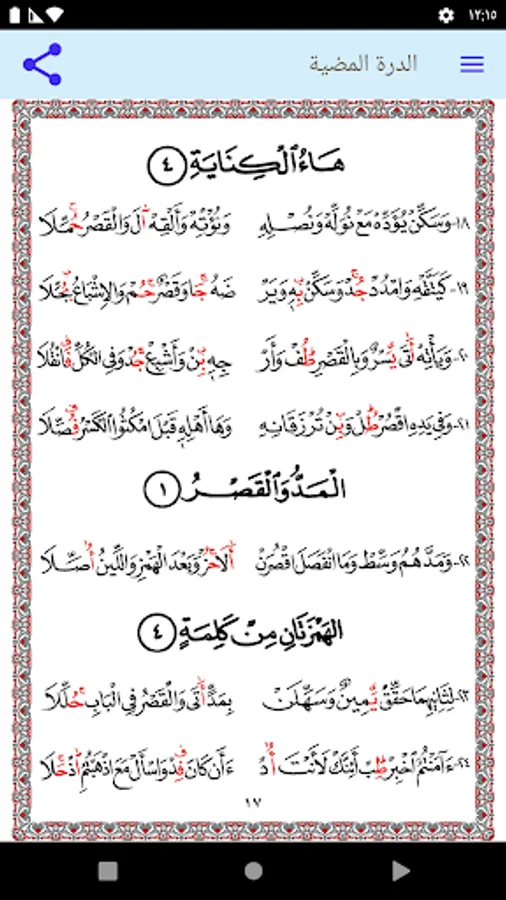 ١٢:١٥
الدرة المضية
هَاءُ الْكِنَايَةِ (٤)
١٨- وَسَكِّنْ يُؤَدِّهْ مَعْ نُوَلِّهْ وَنُصْلِهِ وَنُؤْتِهْ وَأَلْقِهْ آلَ وَالْقَصْرُ حُمِّلَا
١٩- كَيَتَّقْهِ وَامْدُدْ جُدْ وَسَكِّنْ بِهِ وَيَرْ ضَهُ جَا وَقَصْرٌ حُمْ وَالِاشْبَاعُ بُجِّلَا
٢٠- وَيَأْتِهْ أَتَى يُسْرٌ وَبِالْقَصْرِ طُفْ وَأَرْ جِهِ بِنْ وَأَشْبِعْ جُدْ وَفِي الْكُلِّ فَانْقُلَا
٢١- وَفِي يَدِهِ اقْصُرْ طُلْ وَبِنْ تُرْزَقَانِهِ وَهَا أَهْلِهِ قَبْلَ امْكُثُوا الْكَسْرُ فُصِّلَا
الْمَدُّ وَالْقَصْرُ (١)
٢٢- وَمَدَّهُمُ وَسِّطْ وَمَا انْفَصَلَ اقْصُرَنْ أَلَا حُزْ وَبَعْدَ الْهَمْزِ وَاللِّينُ أُصِّلَا
الْهَمْزَتَانِ مِنْ كَلِمَةٍ (٤)
٢٣- لِثَانِيهِمَا حَقِّقْ يَمِينٌ وَسَهِّلَنْ بِمَدٍّ أَتَى وَالْقَصْرُ فِي الْبَابِ حُلِّلَا
٢٤- ءَآمَنْتُمُ اخْبِرْ طِبْ أَئِنَّكَ لَأَنْتَ أُدْ ءَأَنْ كَانَ فِدْ وَاسْأَلْ مَعَ اذْهَبْتُمُ اذْ حَلَا
١٧